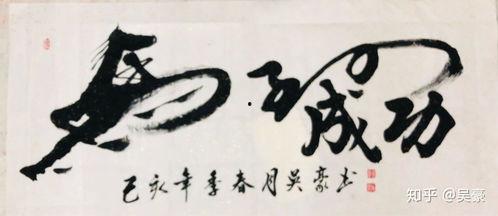 馬到成功
己亥年季春月吴豪书
知乎 @吴豪